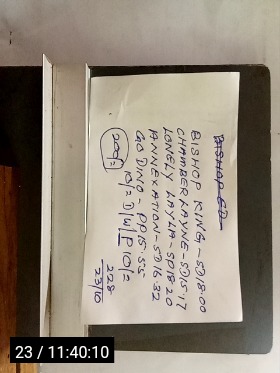 BISHOP SD-
BISHOP KING - SD 18.00
CHAMBER LAYNE - SD 15.17
LONELY LAYLA - SD 18.20
ANNEXATION - SD 16.32
GO DINO - PP 15.55
10/= D/W/P 10/=
200/=
228
23/10
23 / 11:40:10